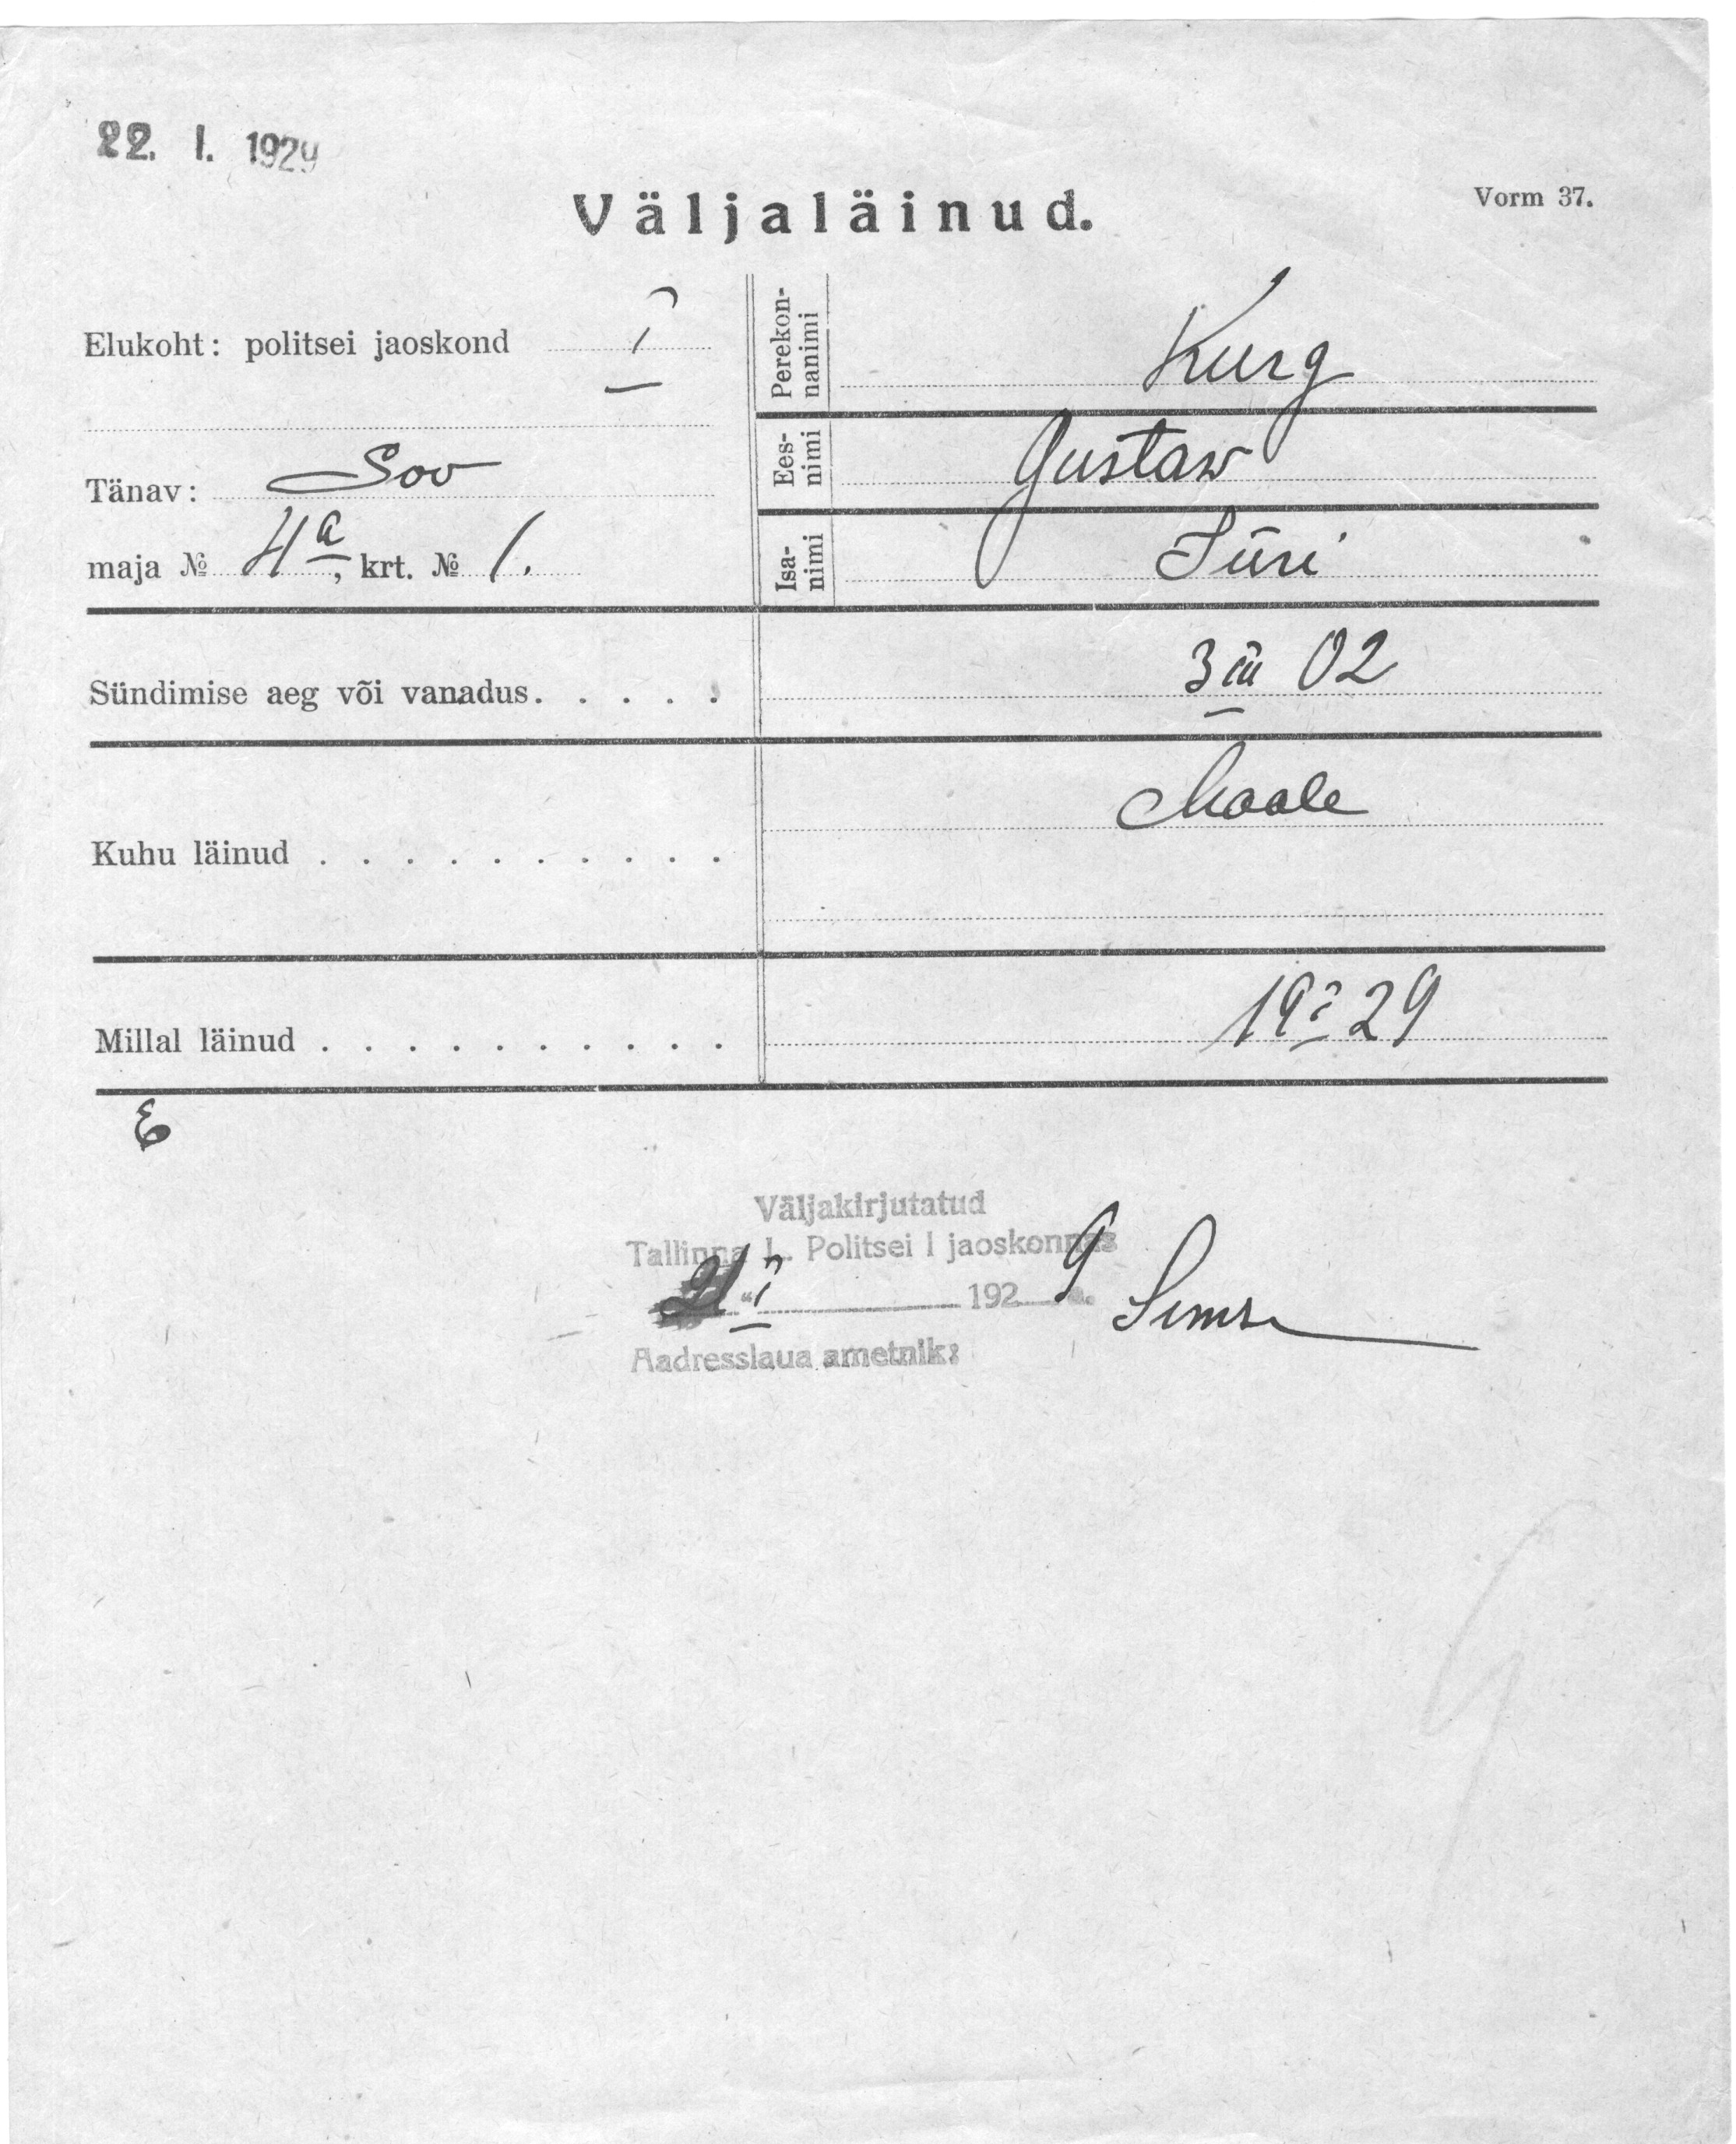 22. I. 1929
Väljaläinud.
Vorm 37.
Elukoht: politsei jaoskond I
Tänav: Soo
maja № 4a, krt. № 1.
Perekon-
nanimi
Kurg
Ees-
nimi
Gustaw
Isa-
nimi
Jüri
Sündimise aeg või vanadus. . . . . 3 III 02
Kuhu läinud . . . . . . . . . . Maale
Millal läinud . . . . . . . . . . 19 I 29
Väljakirjutatud
Tallinna L. Politsei I jaoskonnas
21 " I 1929 a.
Aadresslaua ametnik: